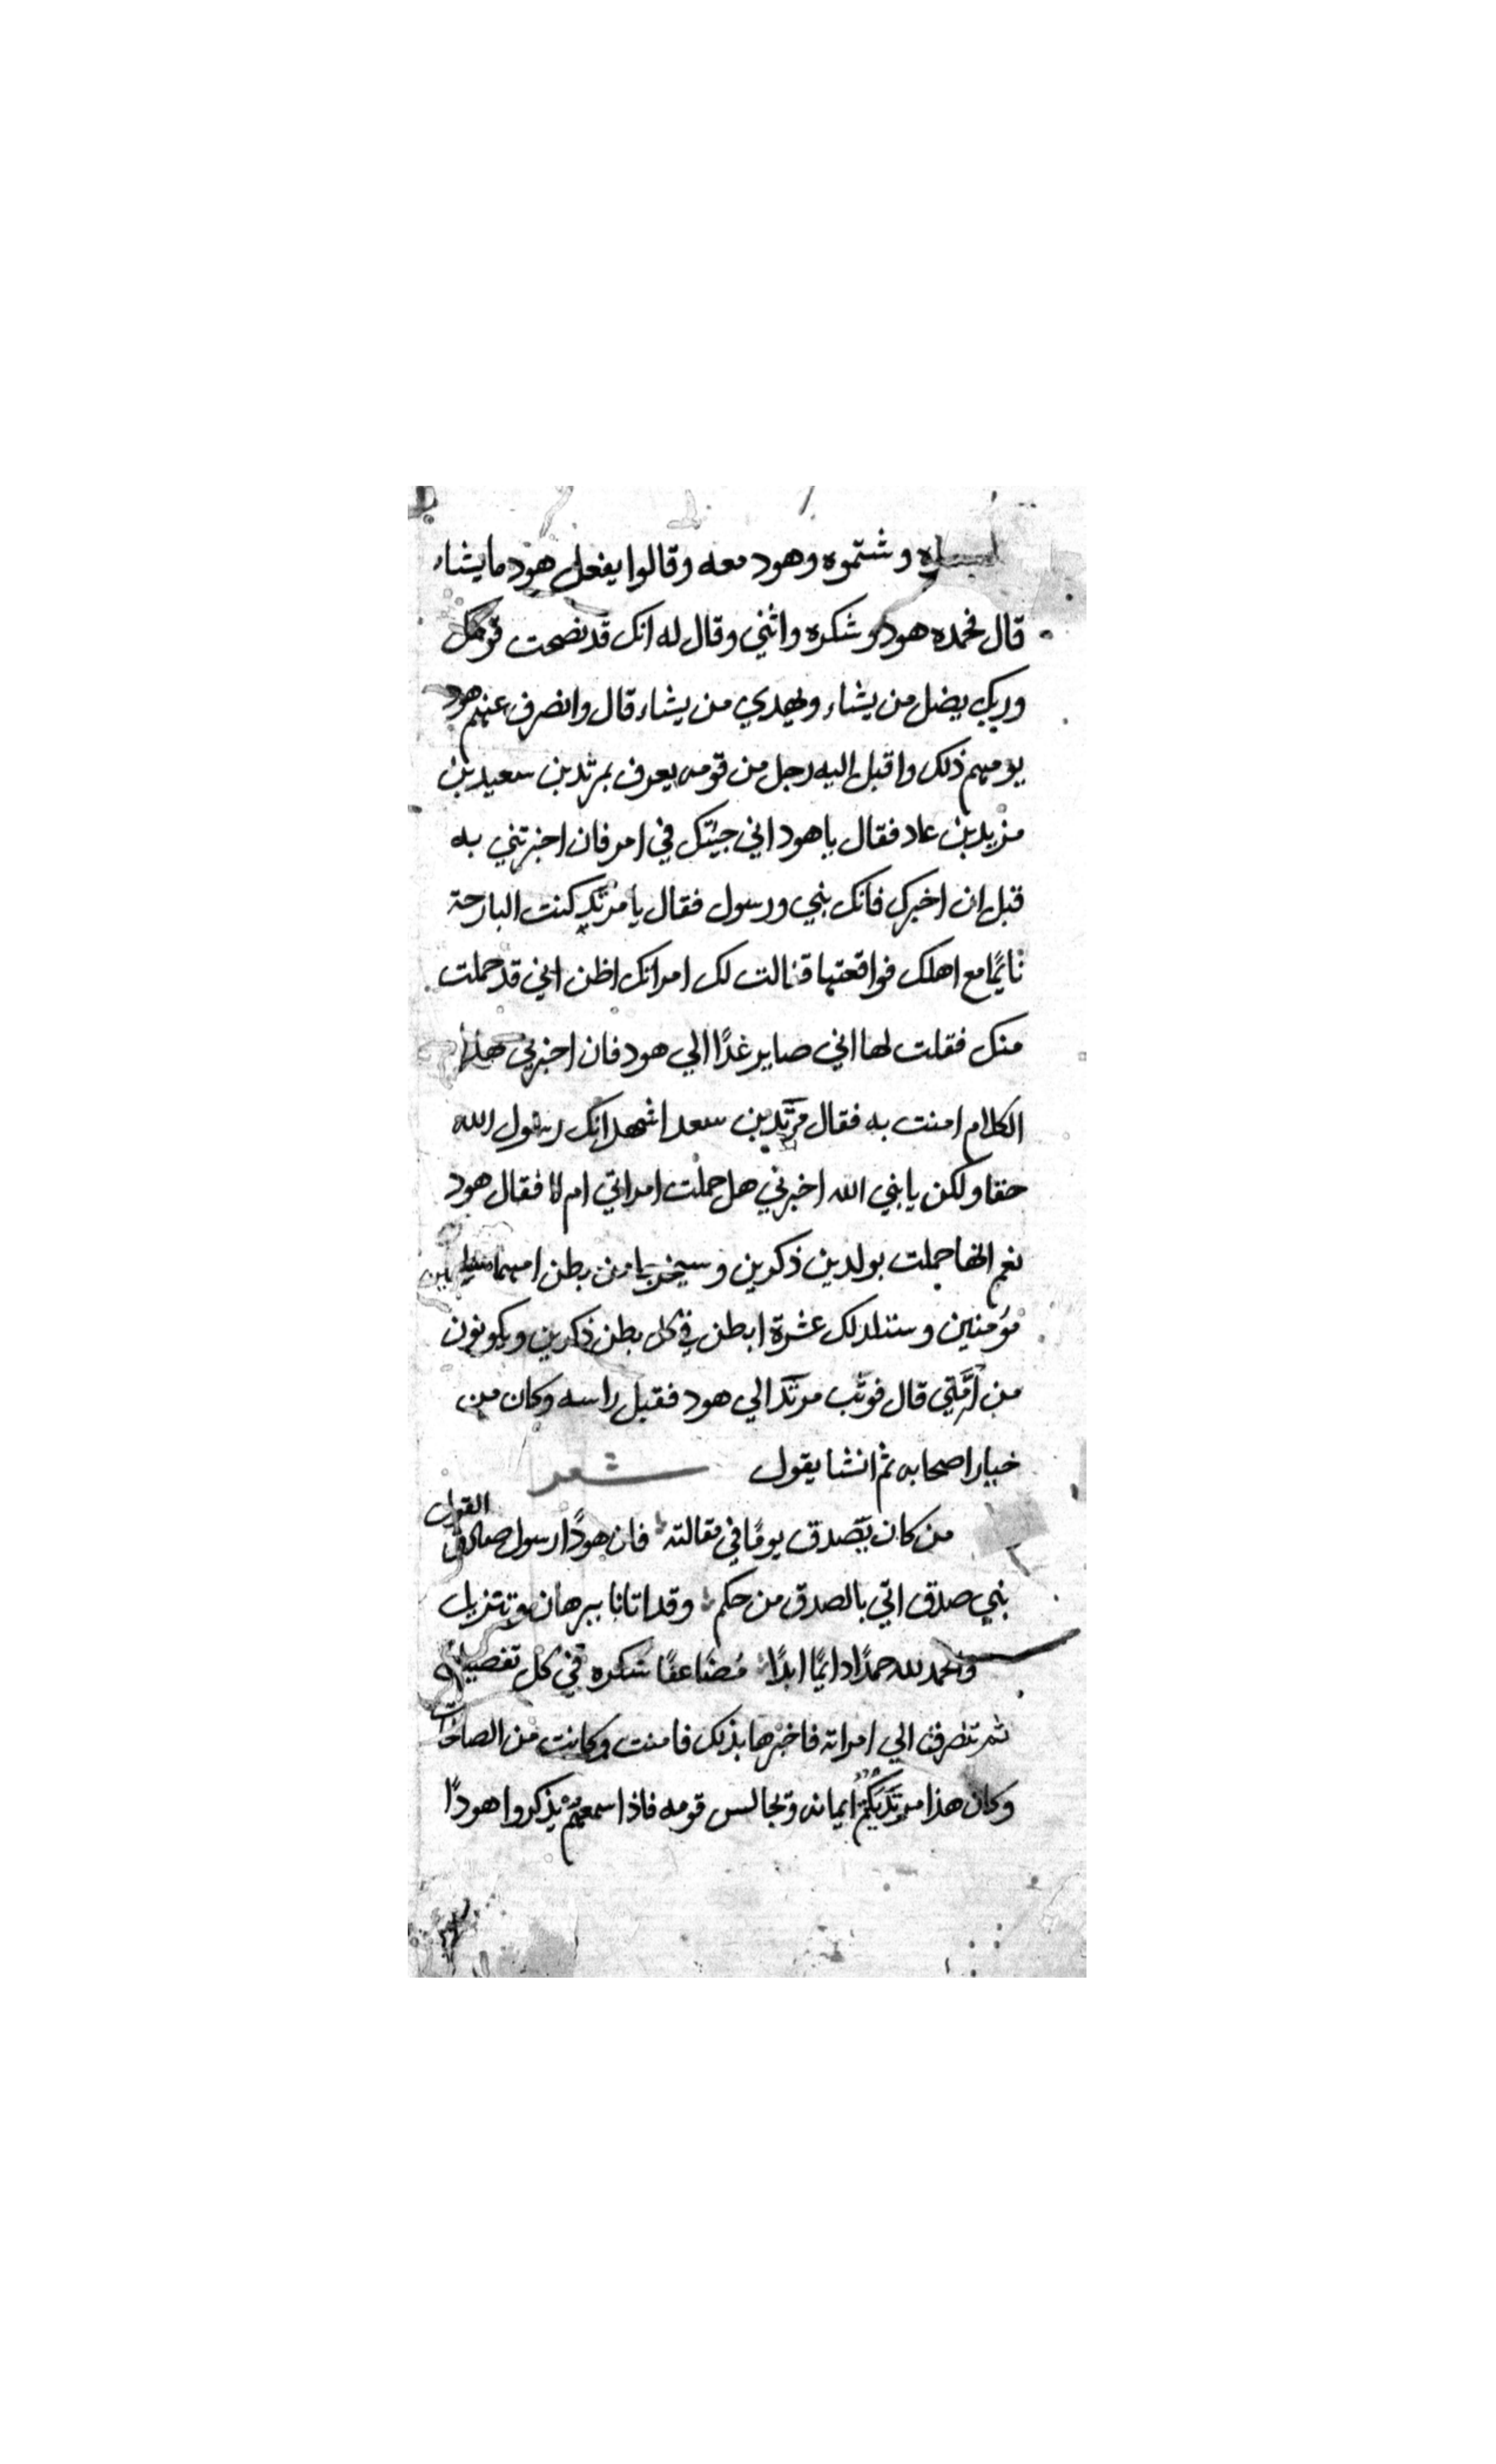 وشتموه وهود معه وقالوا يفعل هود ما يشاء
قال فحمده هود وشكره واثني وقال له انك قد نصحت قومك
وربك يضل من يشاء ويهدي من يشاء قال وانصرف عنهم هود
يومهم ذلك واقبل اليه رجل من قومه يعرف بمرثد بن سعيد بن
مزيد بن عاد فقال يا هود اني جيتك في امر فان اخبرتني به
قبل ان اخبرك فانك نبي ورسول فقال يا مرثد كنت البارحة
نايمًا مع اهلك فواقعتها فقالت لك امراتك اظن اني قد حملت
منك فقلت لها اني صاير غدًا الي هود فان اخبرني هذا
الكلام امنت به فقال مرثد بن سعد اشهد انك رسول الله
حقا ولكن يا نبي الله اخبرني هل حملت امراتي ام لا فقال هود
نعم انها حملت بولدين ذكرين وسيخرجا من بطن امهما
مؤمنين وستلد لك عشرة ابطن في كل بطن ذكرين ويكونون
من امتي قال فوثب مرثد الي هود فقبل راسه وكان من
خيار اصحابه ثم انشا يقول شعر
من كان يصدق يومًا في مقالته فان هودًا رسول صادق القول
نبي صدق اتي بالصدق من حكم وقد اتانا ببرهان وتنزيل
والحمد لله حمدًا دايمًا ابدًا مضاعفًا شكره في كل تفصيل
ثم تصرف الي امراته فاخبرها بذلك فامنت وكانت من الصالحات
وكان هذا مرثد يكتم ايمانه وتجالس قومه فاذا سمعهم يذكروا هودًا